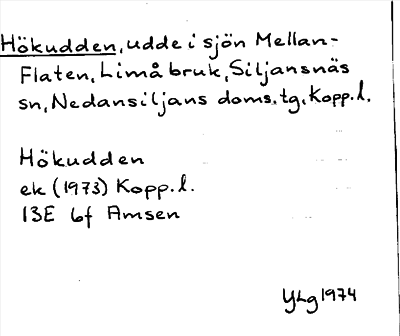 Hökudden, udde i sjön Mellan-
Flaten, Limå bruk, Siljansnäs
sn, Nedansiljans doms.tg, Kopp.l.
Hökudden
ek (1973) Kopp.l.
13E 6f Amsen
YLg 1974